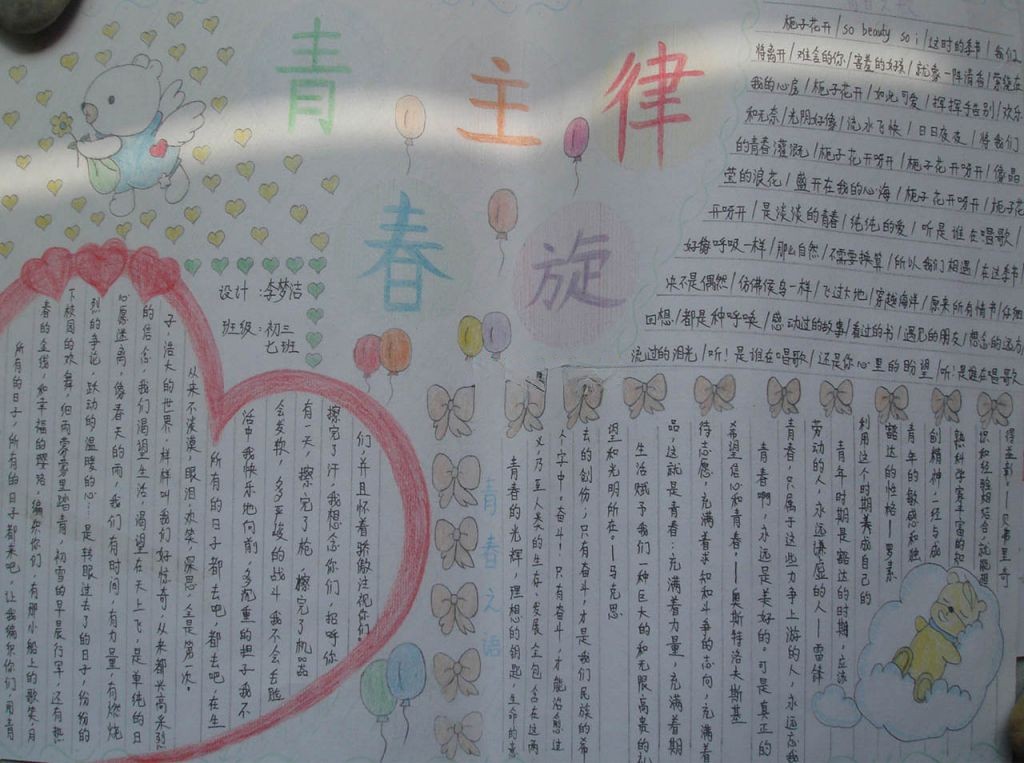 青春主旋律
设计：李梦洁
班级：初三
七班
栀子花开/so beauty so i/这时的季节/我们
将离开/难舍的你/害羞的女孩/就像一阵清香/萦绕在
我的心房/栀子花开/如此可爱/挥挥手告别/欢乐
和无奈/光阴好像/流水飞快/日日夜夜/将我们
的青春灌溉/栀子花开呀开/栀子花开呀开/像晶
莹的浪花/盛开在我的心海/栀子花开呀开/栀子花
开呀开/是淡淡的青春/纯纯的爱/听是谁在唱歌/
好像呼吸一样/那么自然/不需要换算/所以我们相遇/在这季节
决不是偶然/仿佛侯鸟一样/飞过大地/穿越海洋/原来所有情节/仔细
回想/都是种呼唤/感动过的故事/看过的书/遇见的朋友/想念的远方
流过的泪光/听!是谁在唱歌/还是你心里的盼望/听!是谁在唱歌
所有的日子，所有的日子都来吧，让我编织你们，用青
春的金线，和幸福的璎珞，编织你们，有那小船上的歌笑，月
下校园的欢舞，细雨蒙蒙里踏青，初雪的早晨行军，还有热
烈的争论，跃动的温暖的心…是转眼过去了的日子，纷纷的
心愿迷离，像春天的雨，我们有时间，有力量，有燃烧
的信念，我们渴望生活，渴望在天上飞，是单纯的日
子，浩大的世界，样样叫我们好惊奇，从来都兴高采烈
从来不淡漠，眼泪，欢笑，深思，全是第一次。
所有的日子都去吧，都去吧，在生
活中我快乐地向前，多沉重的担子我不
会发软，多么严峻的战斗我不会丢脸
有一天，擦完了枪，擦完了机器
擦完了汗，我想念你们，招呼你
们，并且怀着骄傲注视你们
青春之语
青春的光辉，理想的钥匙，生命的意
义，乃至人类的生存、发展，全包含在这两
个字中。奋斗！只有奋斗，才能治愈过
去的创伤，只有奋斗，才是我们民族的希
望和光明所在。——马克思
生活赋予我们一种巨大的和无限高贵的礼
品，这就是青春：充满着力量，充满着期
待志愿，充满着求知和斗争的志向，充满着
希望信心和青春。——奥斯特洛夫斯基
青春啊，永远是美好的。可是真正的
青春，只属于这些力争上游的人，永远忘我
劳动的人，永远谦虚的人——雷锋
青年时期是豁达的时期，应该
利用这个时期养成自己的
豁达的性格——罗素
青年的敏感和独
创精神，一经与成
熟科学家丰富的知
识和经验相结合，就能相
得益彰！——贝弗里奇